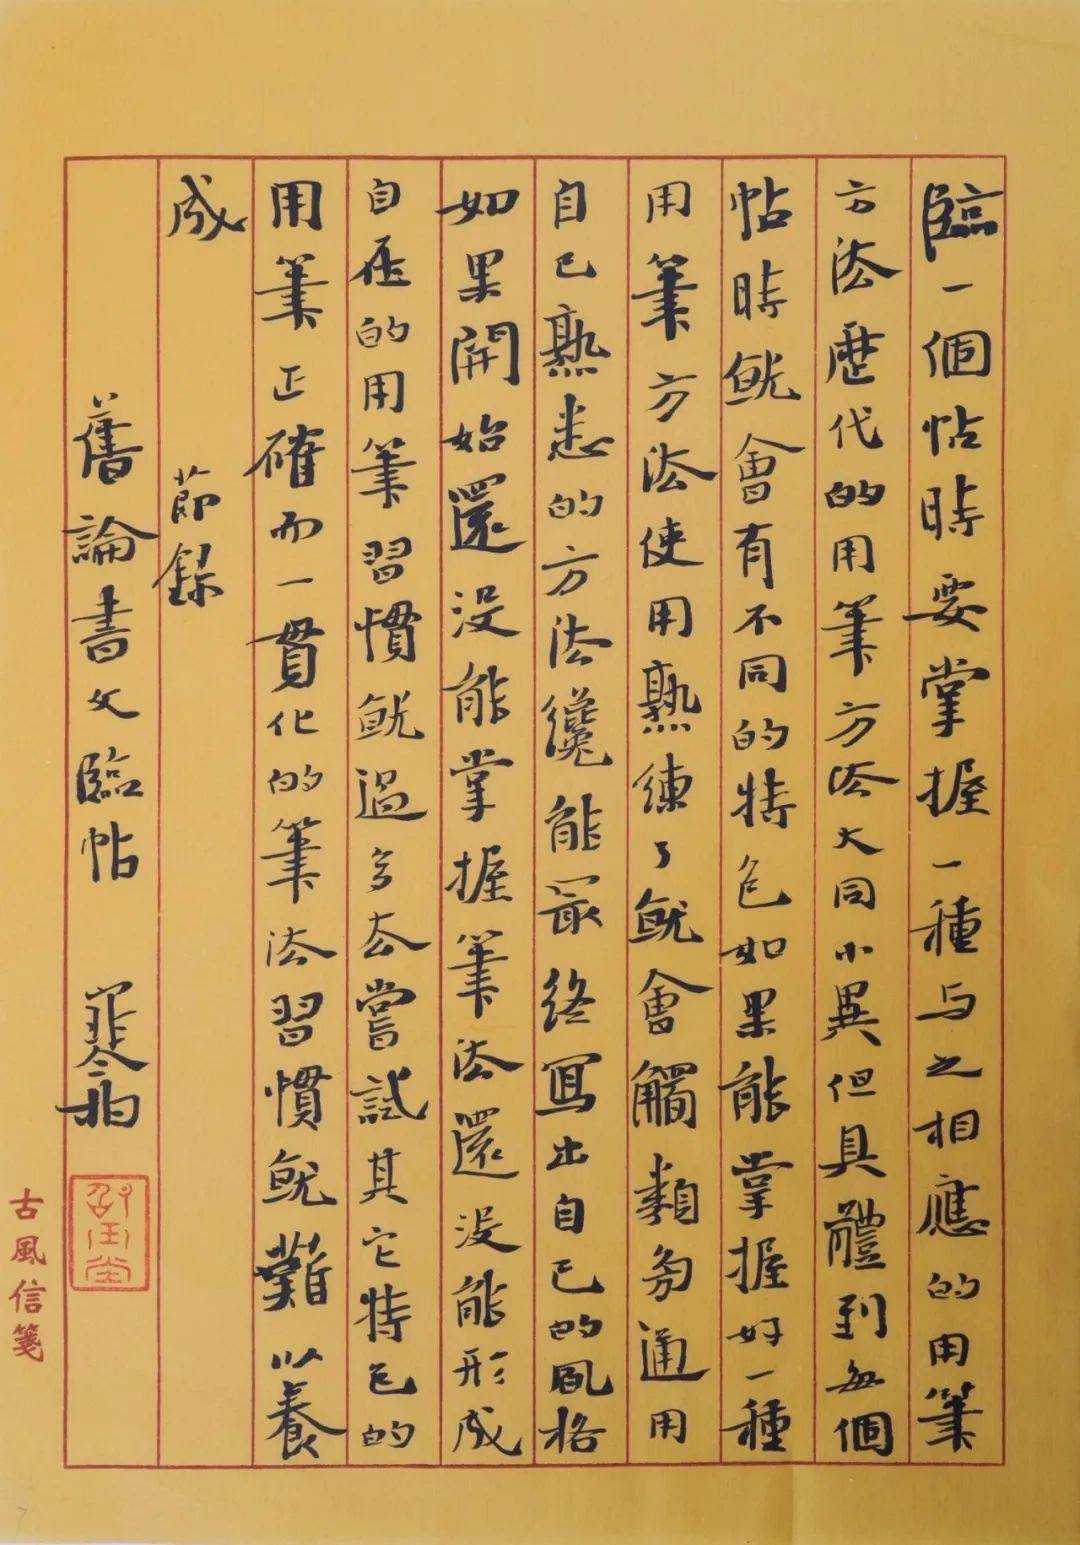 臨一個帖時要掌握一種与之相應的用筆
方法歷代的用筆方法大同小異但具體到每個
帖時就會有不同的特色如果能掌握好一種
用筆方法使用熟練了就會觸類旁通用
自己熟悉的方法纔能最終寫出自己的風格
如果開始還没能掌握筆法還没能形成
自的用筆習慣就過多去嘗試其它特色的
用筆正確而一貫化的筆法習慣就難以養
成 節録
舊論書文臨帖
古風信箋